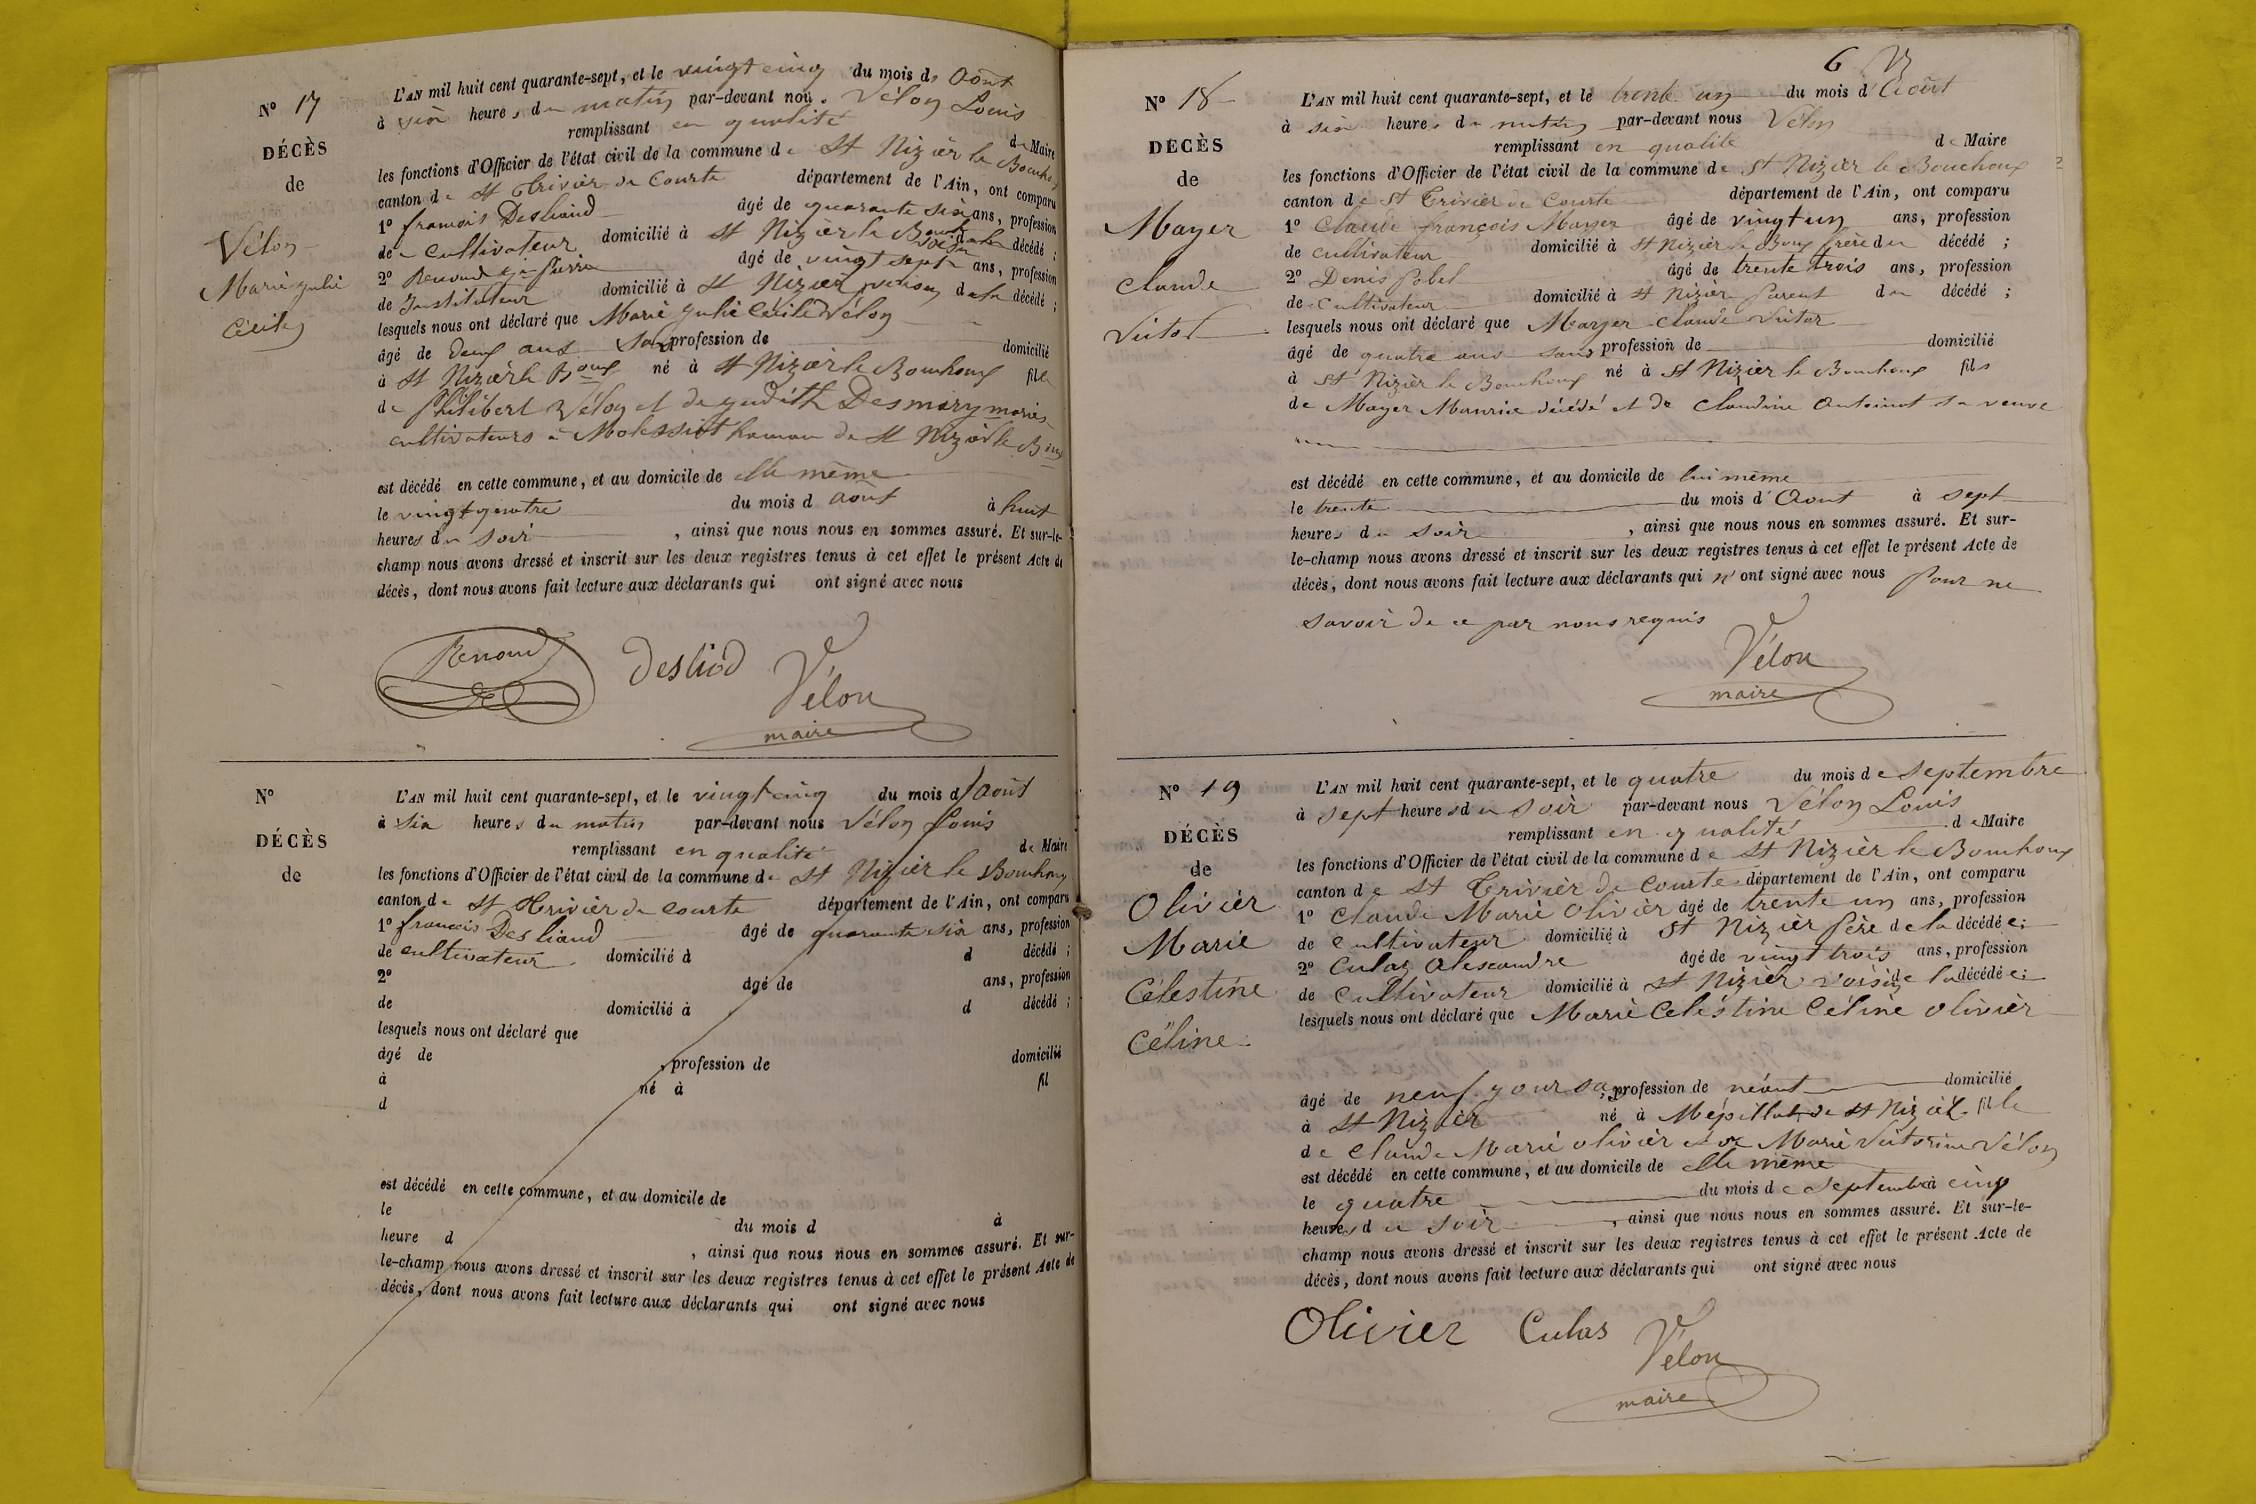 N° 17
DÉCÈS
de
Vélon
Marie Julie
Cécile
L'AN mil huit cent quarante-sept, et le vingt cinq du mois d Août
à six heures du matin par-devant nou. Vélon Louis
remplissant en qualité de Maire
les fonctions d'Officier de l'état civil de la commune de St Nizier le Bouchoux
canton de St Trivier de Courte département de l'Ain, ont comparu
1° francois Desliaud âgé de quarante six ans, profession
de cultivateur domicilié à St Nizièr le Boux voisin de la décédé ;
2° Renoud âgé de vingt sept ans, profession
de Instituteur domicilié à St Nizier voisin de la décédé ;
lesquels nous ont déclaré que Marie Julie Cécile Vélon
âgé de deux ans sans profession de domicilié
à St Nizièr le Boux né à St Nizièr le Bouchoux fille
de Philibert Vélon et de Judith Desmary mariés
cultivateurs à hameau de St Nizièr le Boux
est décédé en cette commune, et au domicile de elle même
le vingt quatre du mois d août à huit
heures du soir , ainsi que nous nous en sommes assuré. Et sur-le-
champ nous avons dressé et inscrit sur les deux registres tenus à cet effet le présent Acte de
décès, dont nous avons fait lecture aux déclarants qui ont signé avec nous
Renoud Desliod Vélon
maire
N°
DÉCÈS
de
L'AN mil huit cent quarante-sept, et le vingt cinq du mois d'Août
à six heures du matin par-devant nous Vélon Louis
remplissant en qualité de Maire
les fonctions d'Officier de l'état civil de la commune de St Nizièr le Bouchoux
canton de St Trivièr de Courte département de l'Ain, ont comparu
1° francois Desliaud âgé de quarante six ans, profession
de cultivateur domicilié à d décédé ;
2° âgé de ans, profession
de domicilié à d décédé ;
lesquels nous ont déclaré que
âgé de , profession de domicilié
à né à fil
d
est décédé en cette commune, et au domicile de
le du mois d à
heure d , ainsi que nous nous en sommes assuré. Et sur-
le-champ nous avons dressé et inscrit sur les deux registres tenus à cet effet le présent Acte de
décès, dont nous avons fait lecture aux déclarants qui ont signé avec nous
6
N° 18
DÉCÈS
de
Mayer
Claude
Victor
L'AN mil huit cent quarante-sept, et le trente un du mois d'Août
à six heures du matin par-devant nous Vélon
remplissant en qualité de Maire
les fonctions d'Officier de l'état civil de la commune de St Nizièr le Bouchoux
canton de St Trivièr de Courte département de l'Ain, ont comparu
1° Claude françois Mayer âgé de vingt un ans, profession
de cultivateur domicilié à St Nizièr le Boux frère du décédé ;
2° Denis Pobel âgé de trente trois ans, profession
de cultivateur domicilié à St Nizièr parent du décédé ;
lesquels nous ont déclaré que Mayer Claude Victor
âgé de quatre ans sans profession de domicilié
à St Nizièr le Bouchoux né à St Nizièr le Bouchoux fils
de Mayer Maurice décédé et de Claudine Antoinet sa veuve
est décédé en cette commune, et au domicile de lui même
le trente du mois d'Aout à sept
heures du soir , ainsi que nous nous en sommes assuré. Et sur-
le-champ nous avons dressé et inscrit sur les deux registres tenus à cet effet le présent Acte de
décès, dont nous avons fait lecture aux déclarants qui n'ont signé avec nous pour ne
savoir de ce par nous requis
Vélon
maire
N° 19
DÉCÈS
de
Olivièr
Marie
Célestine
Céline
L'AN mil huit cent quarante-sept, et le quatre du mois de septembre
à sept heures du soir par-devant nous Vélon Louis
remplissant en qualité de Maire
les fonctions d'Officier de l'état civil de la commune de St Nizièr le Bouchoux
canton de St Trivièr de Courte département de l'Ain, ont comparu
1° Claude Marie Olivièr âgé de trente un ans, profession
de cultivateur domicilié à St Nizièr père de la décédée ;
2° Culas Alexandre âgé de vingt trois ans, profession
de cultivateur domicilié à St Nizièr voisin de la décédée ;
lesquels nous ont déclaré que Marie Celéstine Céline Olivièr
âgé de neuf jours sans profession de néant domicilié
à St Nizièr né à Mépillat de St Nizièr fille
de Claude Marie Olivièr et de Marie Victorine Vélon
est décédé en cette commune, et au domicile de elle même
le quatre du mois de septembre à cinq
heures du soir , ainsi que nous nous en sommes assuré. Et sur-le-
champ nous avons dressé et inscrit sur les deux registres tenus à cet effet le présent Acte de
décès, dont nous avons fait lecture aux déclarants qui ont signé avec nous
Olivier Culas Vélon
maire